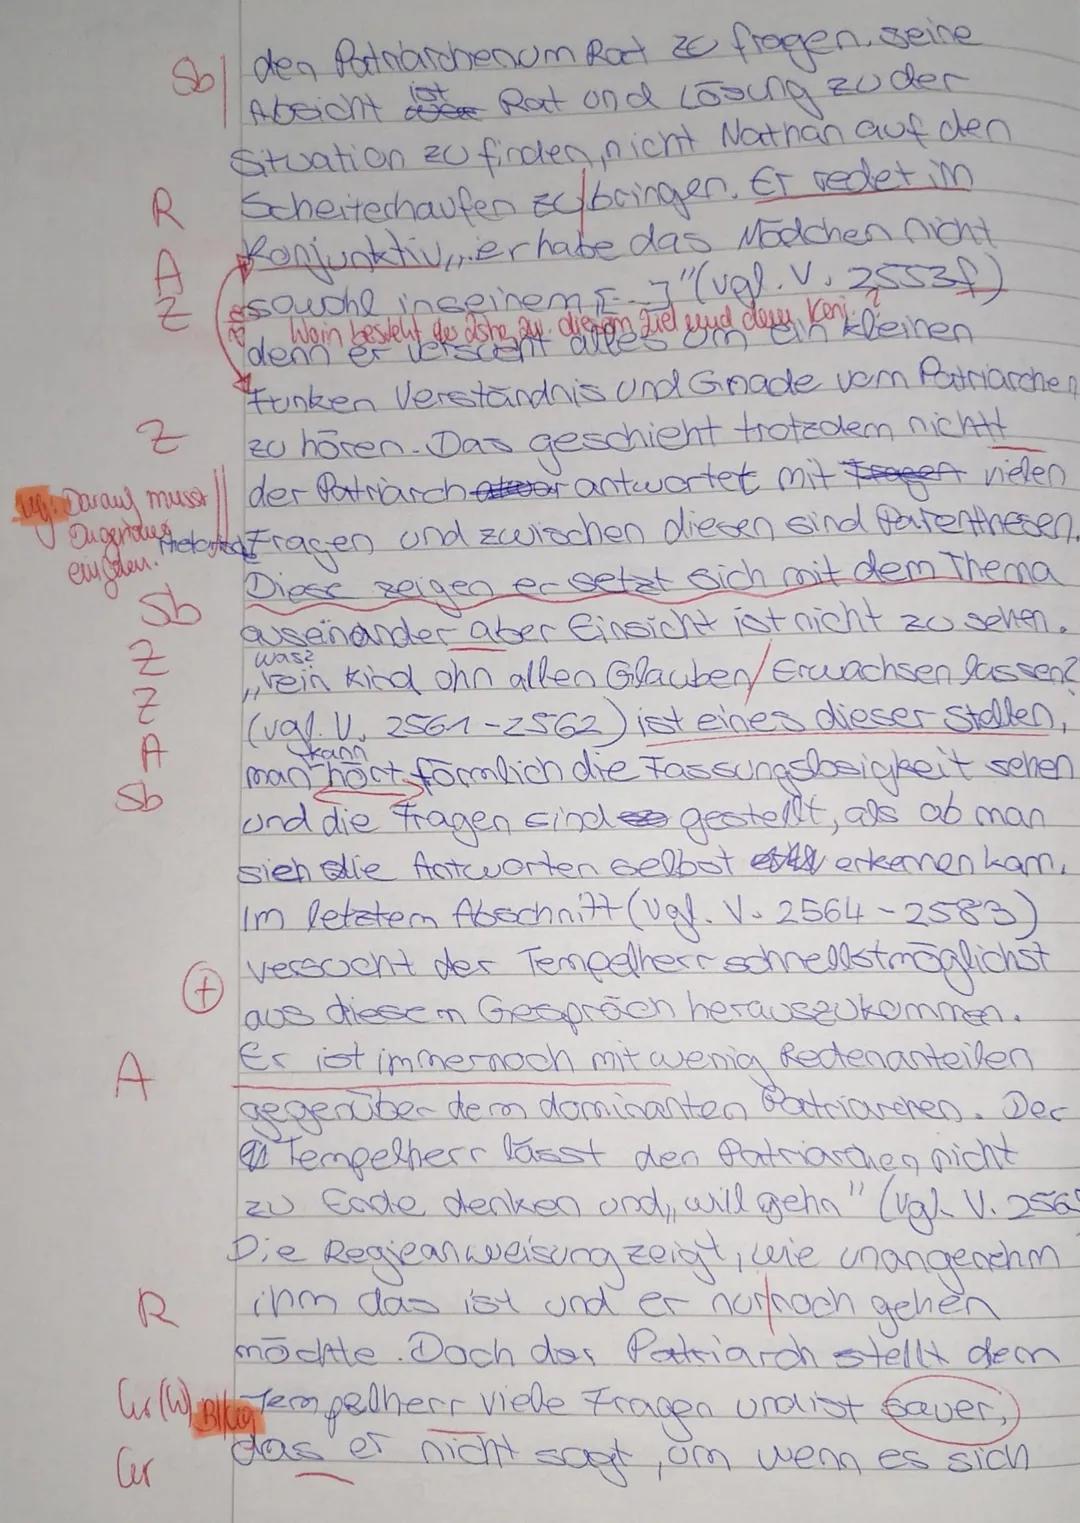 Sb den Patriarchen um Rat zu fragen. seine
Absicht ist Rat und Lösung zu der
Situation zu finden, nicht Nathan auf den
R Scheitechaufen zu bringen. Er redet im
A Konjunktiv „er habe das Mädchen nicht
Z sowohl in seinem [...]" (vgl. V. 2553f)
Worin besteht der zw. diesem Ziel und dem Konj.?
denn er versucht alles um ein kleinen
Funken Verständnis und Gnade vom Patriarchen
Z zu hören. Das geschieht trotzdem nicht
der Patriarch antwortet mit Fragen vielen
Darauf musst
eingehen.
Fragen und zwischen diesen sind Parenthesen.
Diese zeigen er setzt sich mit dem Thema
Sb auseinander aber Einsicht ist nicht zu sehen.
was?
Z „ein Kind ohn allen Glauben/Erwachsen lassen?
Z (vgl. V. 2561-2562) ist eines dieser Stellen,
kann
A man hört förmlich die Fassungslosigkeit sehen
Sb und die Fragen sind gestellt, als ob man
sich die Antworten selbst erkennen kann.
Im letztem Abschnitt (vgl. V. 2564-2583)
versucht der Tempelherr schnellstmöglichst
+ aus diesem Gespräch herauszukommen.
A Er ist immernoch mit wenig Redenanteilen
gegenüber dem dominanten Patriarchen. Der
Tempelherr lässt den Patriarchen nicht
zu Ende denken und „will gehn" (vgl. V. 256
Die Regieanweisung zeigt, wie unangenehm
R ihm das ist und er nur noch gehen
möchte. Doch der Patriarch stellt dem
Gr (W) Tempelherr viele Fragen und ist sauer,
Gr das er nicht sagt, um wenn es sich